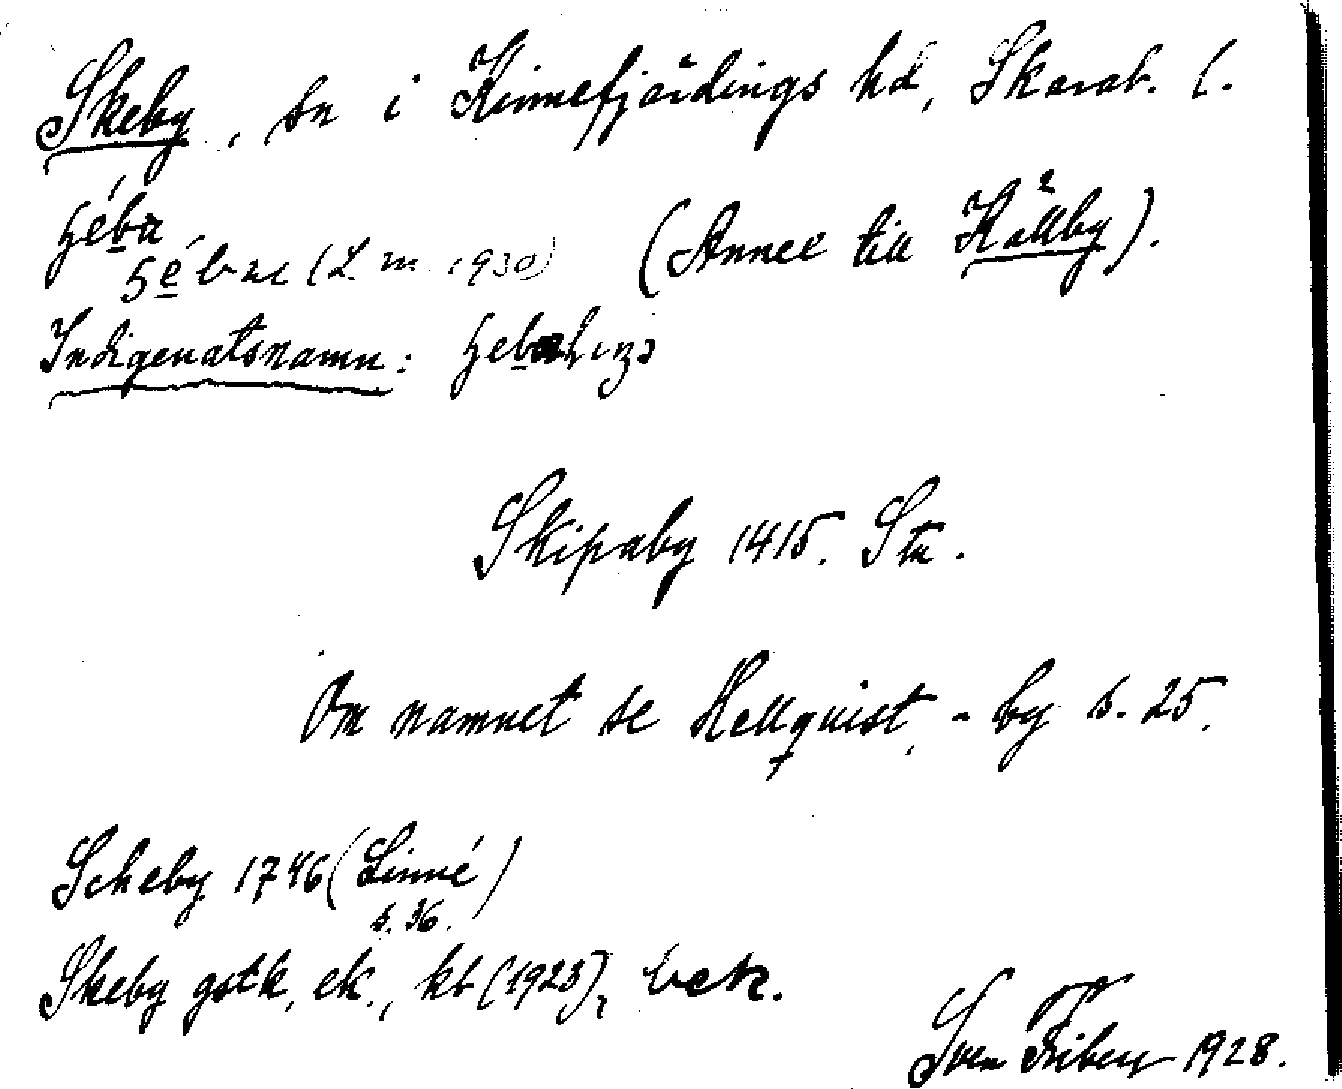 Skeby, sn i Kinnefjärdings hd, Skarab. l.
(Annex till Källby).
(L. m. 1930)
Indigenatsnamn:
Skipaby 1415. Stn.
Om namnet se Hellquist, -by s. 25.
Scheby 1746 (Linné)
s. 36.
Skeby gstk, ek., kb (1923),
Sven Friberg 1928.